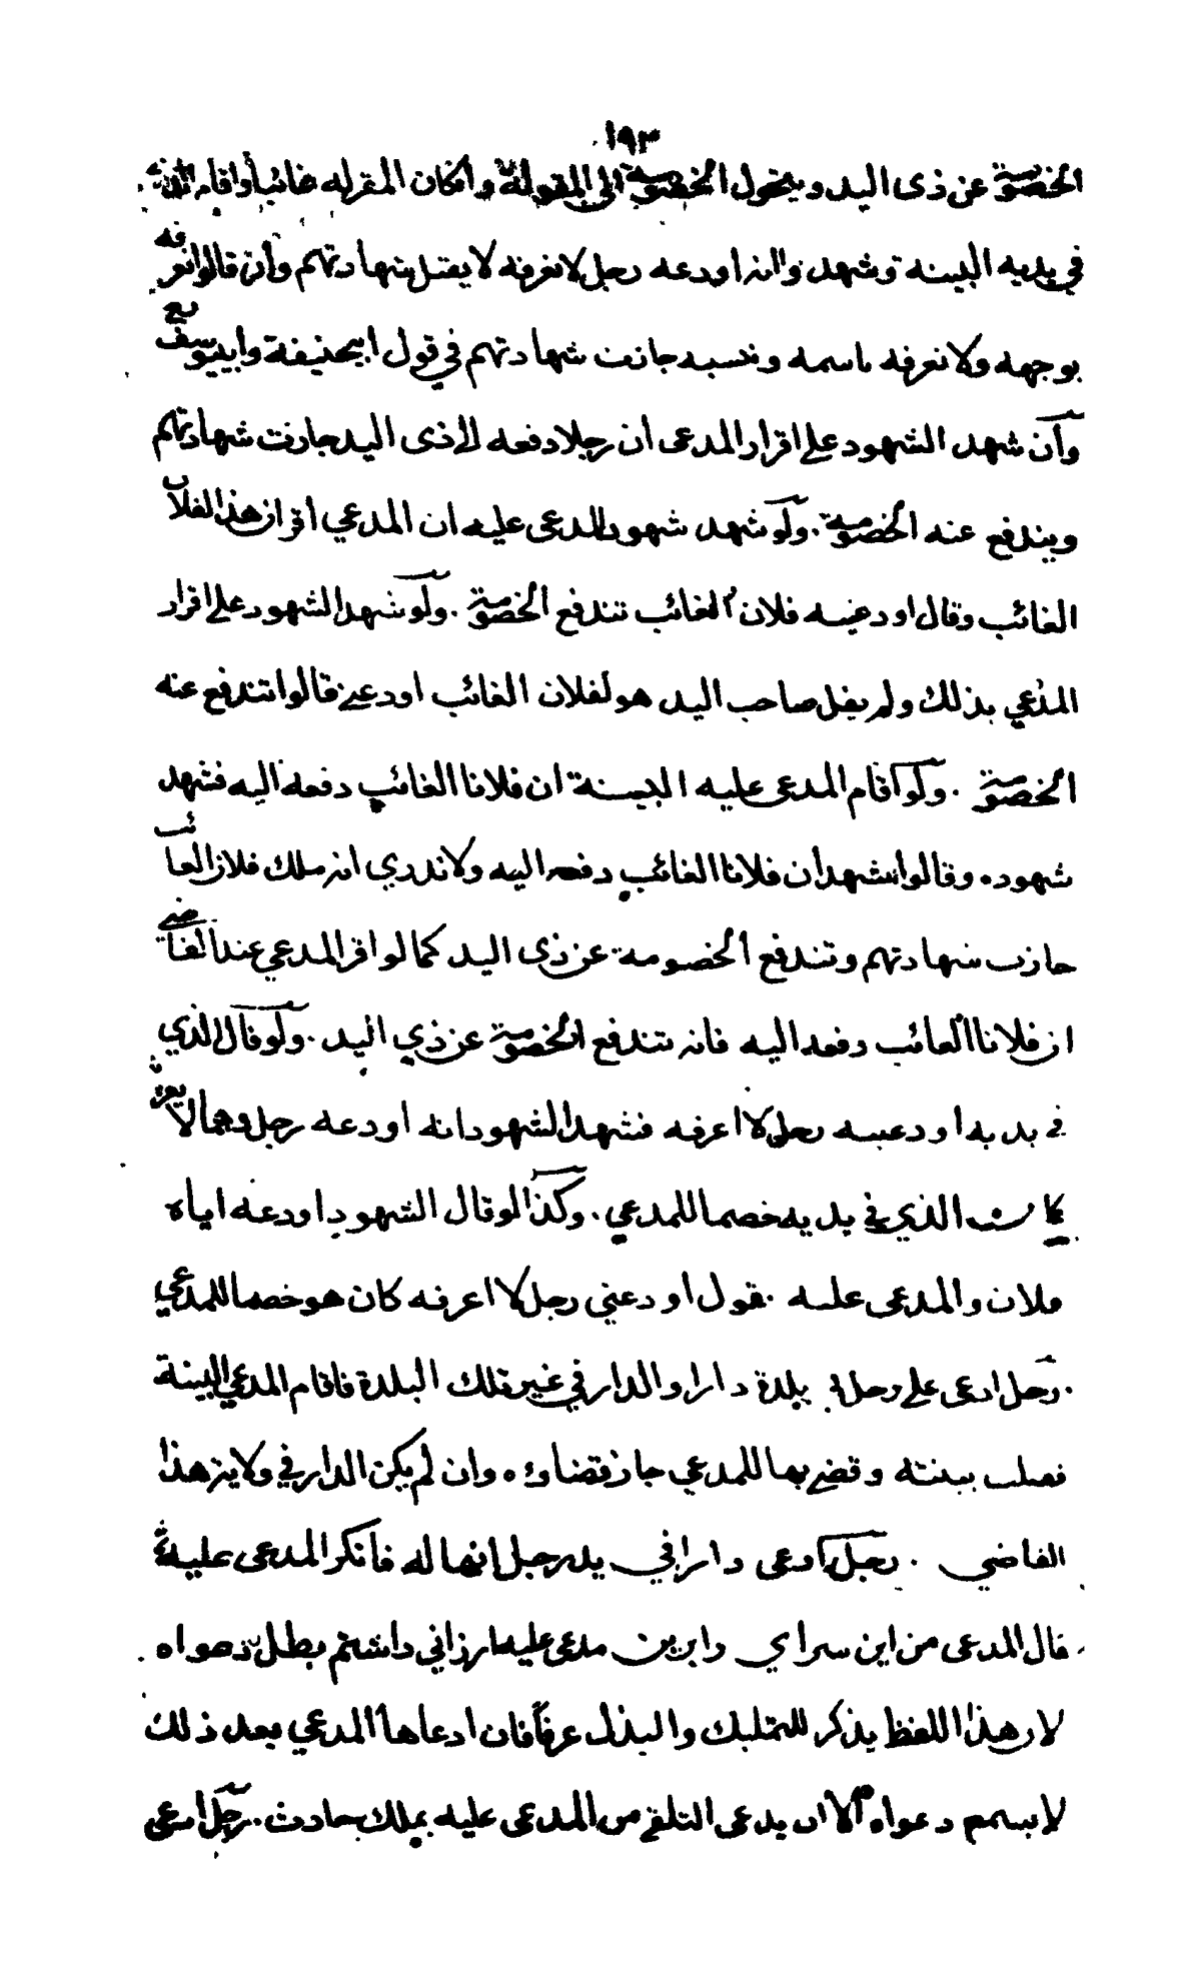 ١٩٣
الخصومة عن ذى اليد ويتحول الخصومة الى المقر له وان كان المقر له غائبا واقام الذى
في يديه البينة وشهدوا انه اودعه رجل لا نعرفه لا يقبل شهادتهم وان قالوا نعرفه
بوجهه ولا نعرفه باسمه ونسبه جازت شهادتهم في قول ابيحنيفة وابييوسف
وان شهد الشهود على اقرار المدعى ان رجلا دفعه الى ذى اليد جازت شهادتهم
ويندفع عنه الخصومة . ولو شهد شهود المدعى عليه ان المدعي اقر ان هذا لفلان
الغائب وقال اودعنيه فلان الغائب تندفع الخصومة . ولو شهد الشهود على اقرار
المدعي بذلك ولم يقل صاحب اليد هو لفلان الغائب اودعنى قالوا تندفع عنه
الخصومة . ولو اقام المدعى عليه البينة ان فلانا الغائب دفعه اليه فشهد
شهوده وقالوا نشهد ان فلانا الغائب دفعه اليه ولا ندري انه ملك فلان الغائب
جازت شهادتهم وتندفع الخصومة عن ذى اليد كما لو اقر المدعي عند القاضى
ان فلانا الغائب دفعه اليه فانه تندفع الخصومة عن ذي اليد . ولو قال الذي
في يديه اودعنيه رجل لا اعرفه فشهد الشهود انه اودعه رجل وهما لا
كان الذي في يديه خصما للمدعي . وكذا لو قال الشهود اودعه اياه
فلان والمدعى عليه يقول اودعني رجل لا اعرفه كان هو خصما للمدعي
. رجل ادعى على رجل في بلدة دارا والدار في غير تلك البلدة فاقام المدعي البينة
ببينته وقضى بها للمدعي جاز قضاؤه وان لم يكن الدار في ولاية هذا
القاضي . رجل ادعى دارا في يد رجل انها له فانكر المدعى عليه
قال المدعى من اين سراي را برين مدعى عليه ارزاني داشتم بطل دعواه
لان هذا اللفظ يذكر للتمليك والبذل عرفا فان ادعاها المدعي بعد ذلك
لا يسمع دعواه الا ان يدعى التلقى من المدعى عليه بملك حادث . رجل ادعى